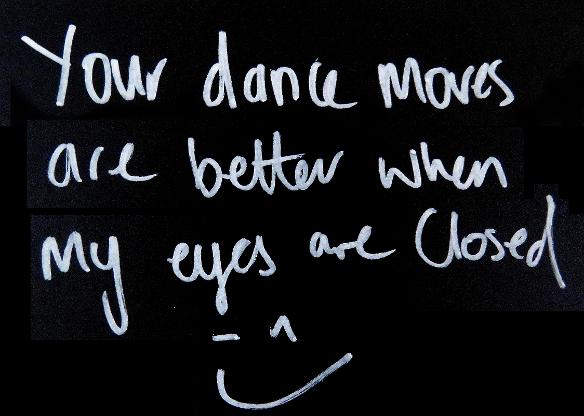 Your dance moves
are better when
my eyes are Closed